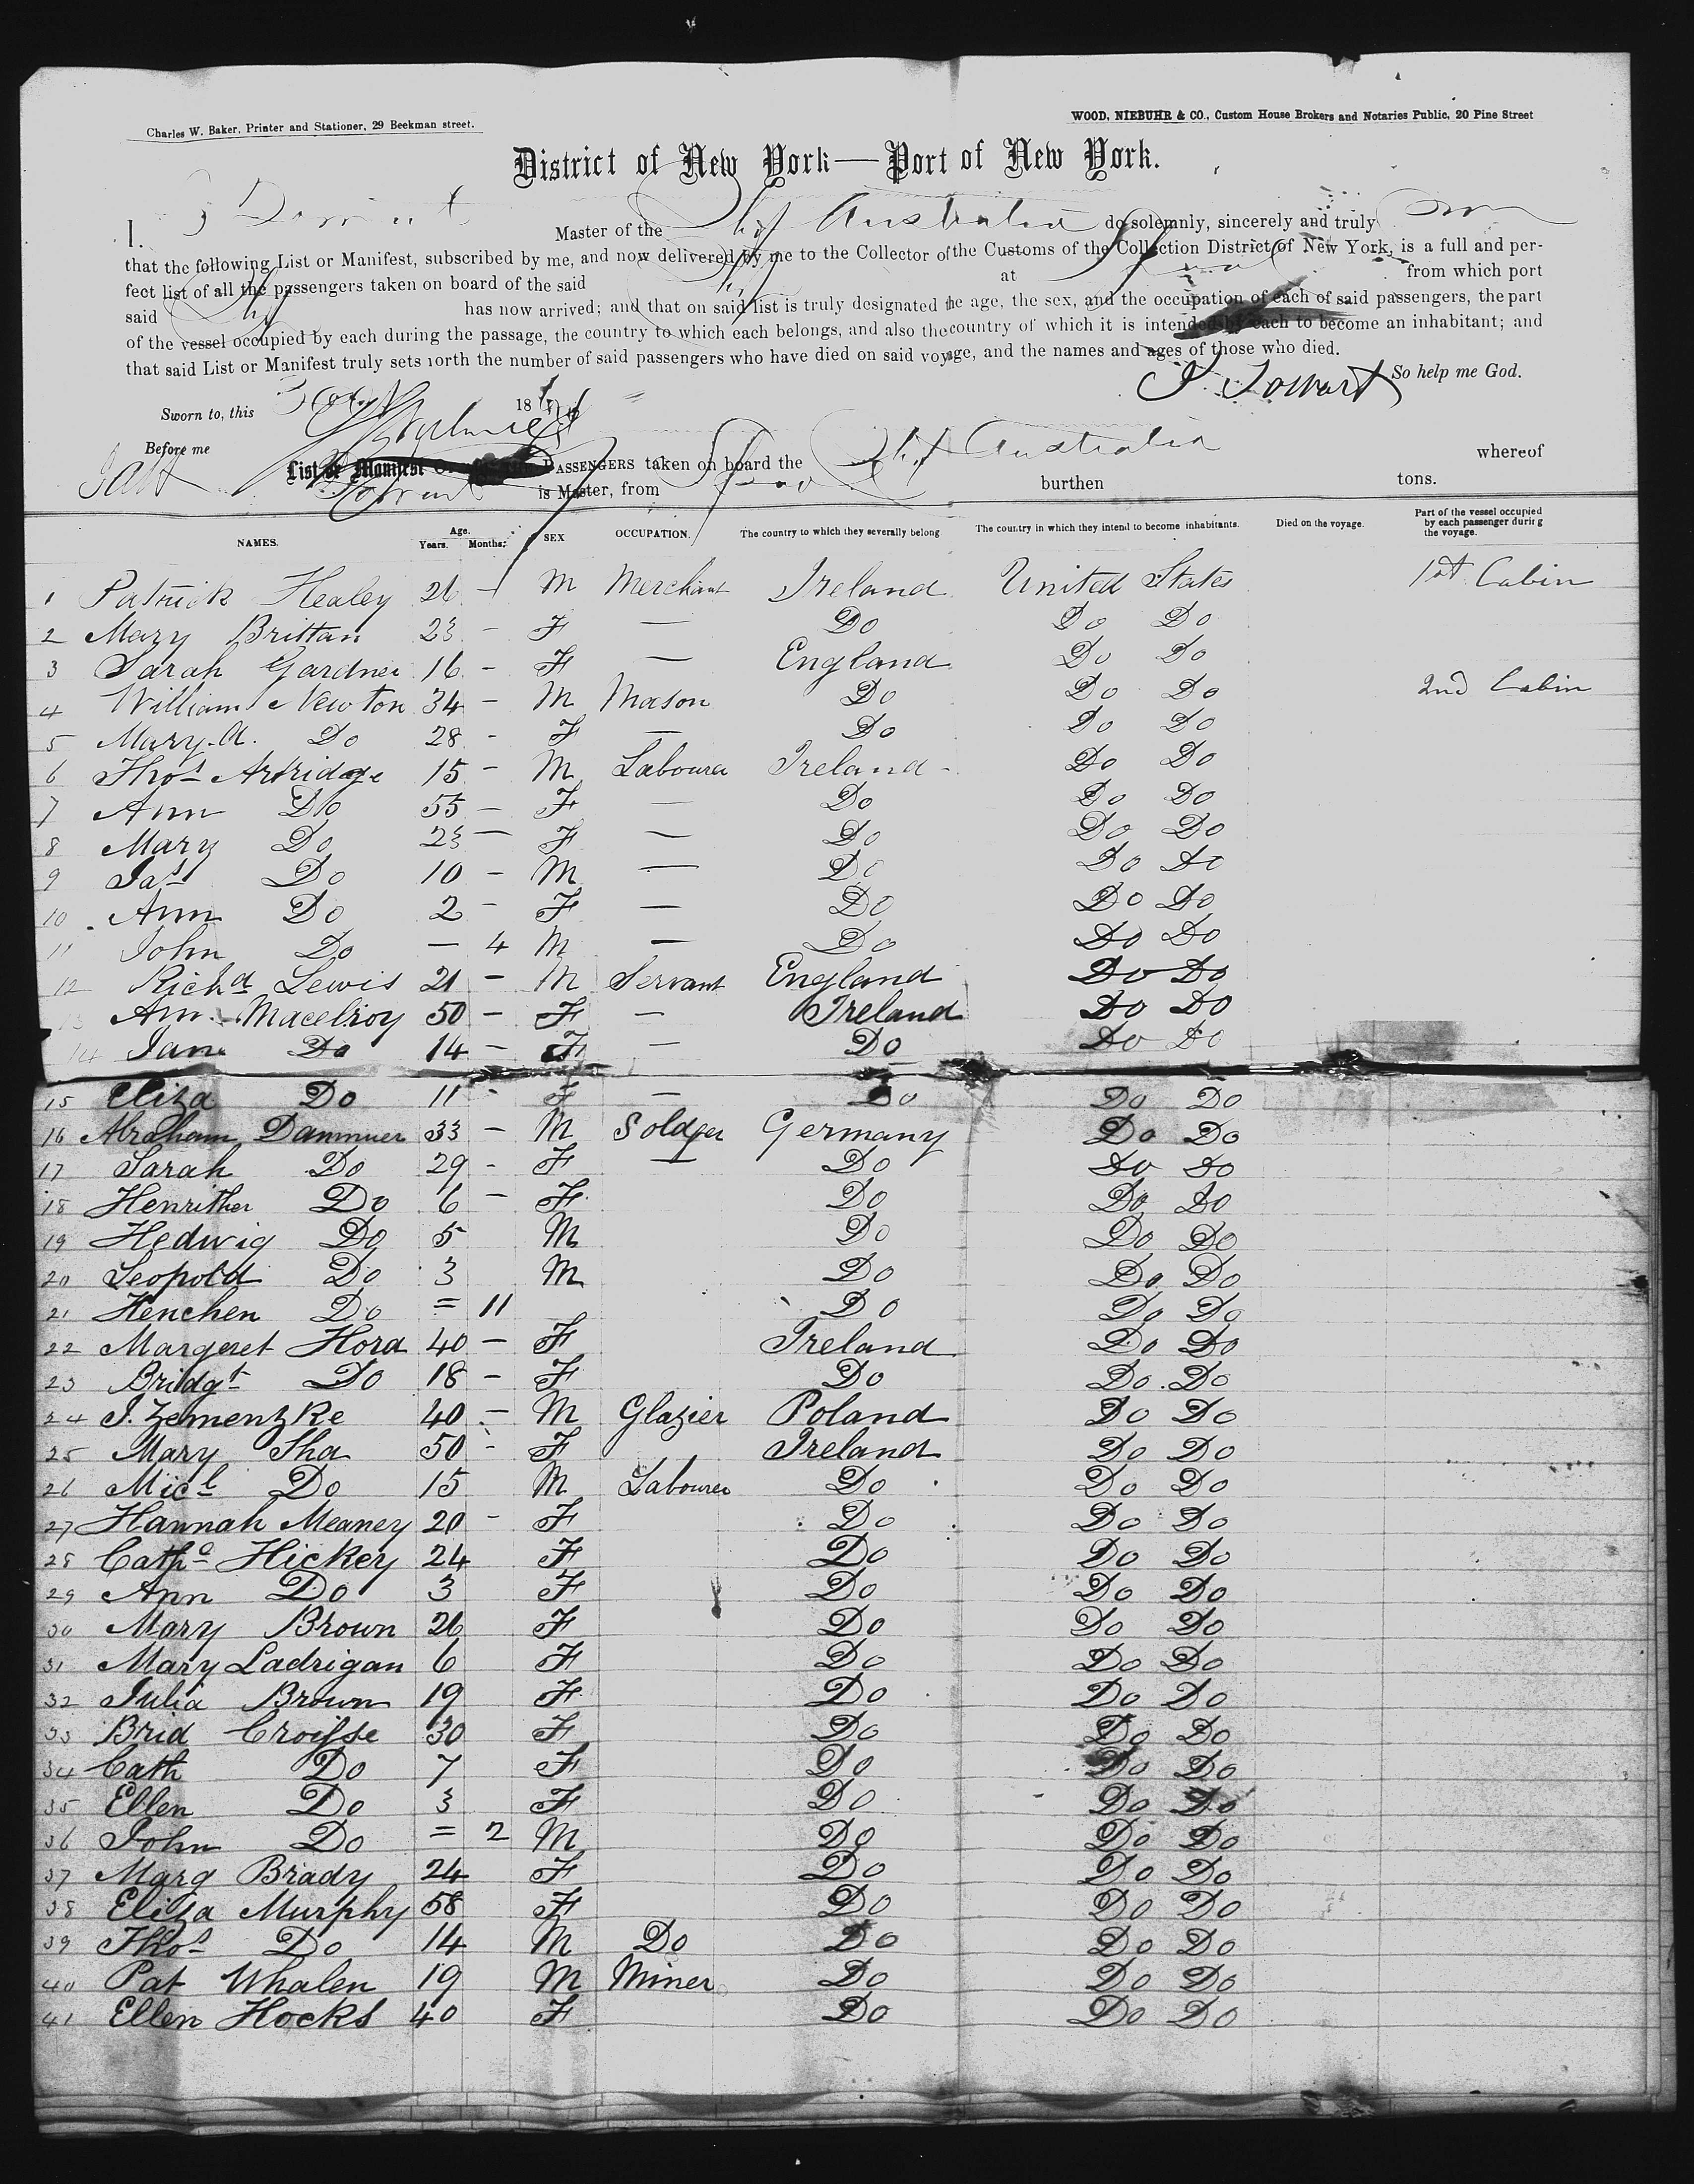 Charles W. Baker, Printer and Stationer, 29 Beekman street.
WOOD, NIEBUHR & CO., Custom House Brokers and Notaries Public, 20 Pine Street
District of New York—Port of New York.
I, Master of the Ship Australia do solemnly, sincerely and truly
that the following List or Manifest, subscribed by me, and now delivered by me to the Collector of the Customs of the Collection District of New York, is a full and per-
fect list of all the passengers taken on board of the said Ship at from which port
said Ship has now arrived; and that on said list is truly designated the age, the sex, and the occupation of each of said passengers, the part
of the vessel occupied by each during the passage, the country to which each belongs, and also the country of which it is intended by each to become an inhabitant; and
that said List or Manifest truly sets forth the number of said passengers who have died on said voyage, and the names and ages of those who died.
So help me God.
Sworn to, this 18
Before me
List or Manifest PASSENGERS taken on board the Ship Australia whereof
is Master, from burthen tons.
NAMES. Age. Years. Months. SEX OCCUPATION. The country to which they severally belong The country in which they intend to become inhabitants. Died on the voyage. Part of the vessel occupied by each passenger during the voyage.
1 Patrick Healey 26 - M Merchant Ireland United States 1st Cabin
2 Mary Brittan 23 - F — Do Do Do
3 Sarah Gardner 16 - F — England Do Do
4 William Newton 34 - M Mason Do Do Do 2nd Cabin
5 Mary A. Do 28 - F — Do Do Do
6 Thos Artridge 15 - M Labourer Ireland Do Do
7 Ann Do 55 - F — Do Do Do
8 Mary Do 23 - F — Do Do Do
9 Jas Do 10 - M — Do Do Do
10 Ann Do 2 - F — Do Do Do
11 John Do — 4 M — Do Do Do
12 Richd Lewis 21 - M Servant England Do Do
13 Ann Macelroy 50 - F — Ireland Do Do
14 Jane Do 14 - F — Do Do Do
15 Eliza Do 11 - F — Do Do Do
16 Abraham Dammuer 33 - M Soldger Germany Do Do
17 Sarah Do 29 - F — Do Do Do
18 Henrither Do 6 - F Do Do Do
19 Hedwig Do 5 M Do Do Do
20 Leopold Do 3 M Do Do Do
21 Henchen Do = 11 Do Do Do
22 Margeret Hora 40 - F Ireland Do Do
23 Bridgt Do 18 - F Do Do Do
24 J. Zemenzke 40 - M Glazier Poland Do Do
25 Mary Sha 50 - F Ireland Do Do
26 Micl Do 15 M Labourer Do Do Do
27 Hannah Meaney 20 - F Do Do Do
28 Catha Hickey 24 F Do Do Do
29 Ann Do 3 F Do Do Do
30 Mary Brown 26 F Do Do Do
31 Mary Ladrigan 6 F Do Do Do
32 Julia Brown 19 F Do Do Do
33 Brid Croisse 30 F Do Do Do
34 Cath Do 7 F Do Do Do
35 Ellen Do 3 F Do Do Do
36 John Do = 2 M Do Do Do
37 Marg Brady 24 F Do Do Do
38 Eliza Murphy 58 F Do Do Do
39 Thos Do 14 M Do Do Do Do
40 Pat Whalen 19 M Miner Do Do Do
41 Ellen Hocks 40 F Do Do Do